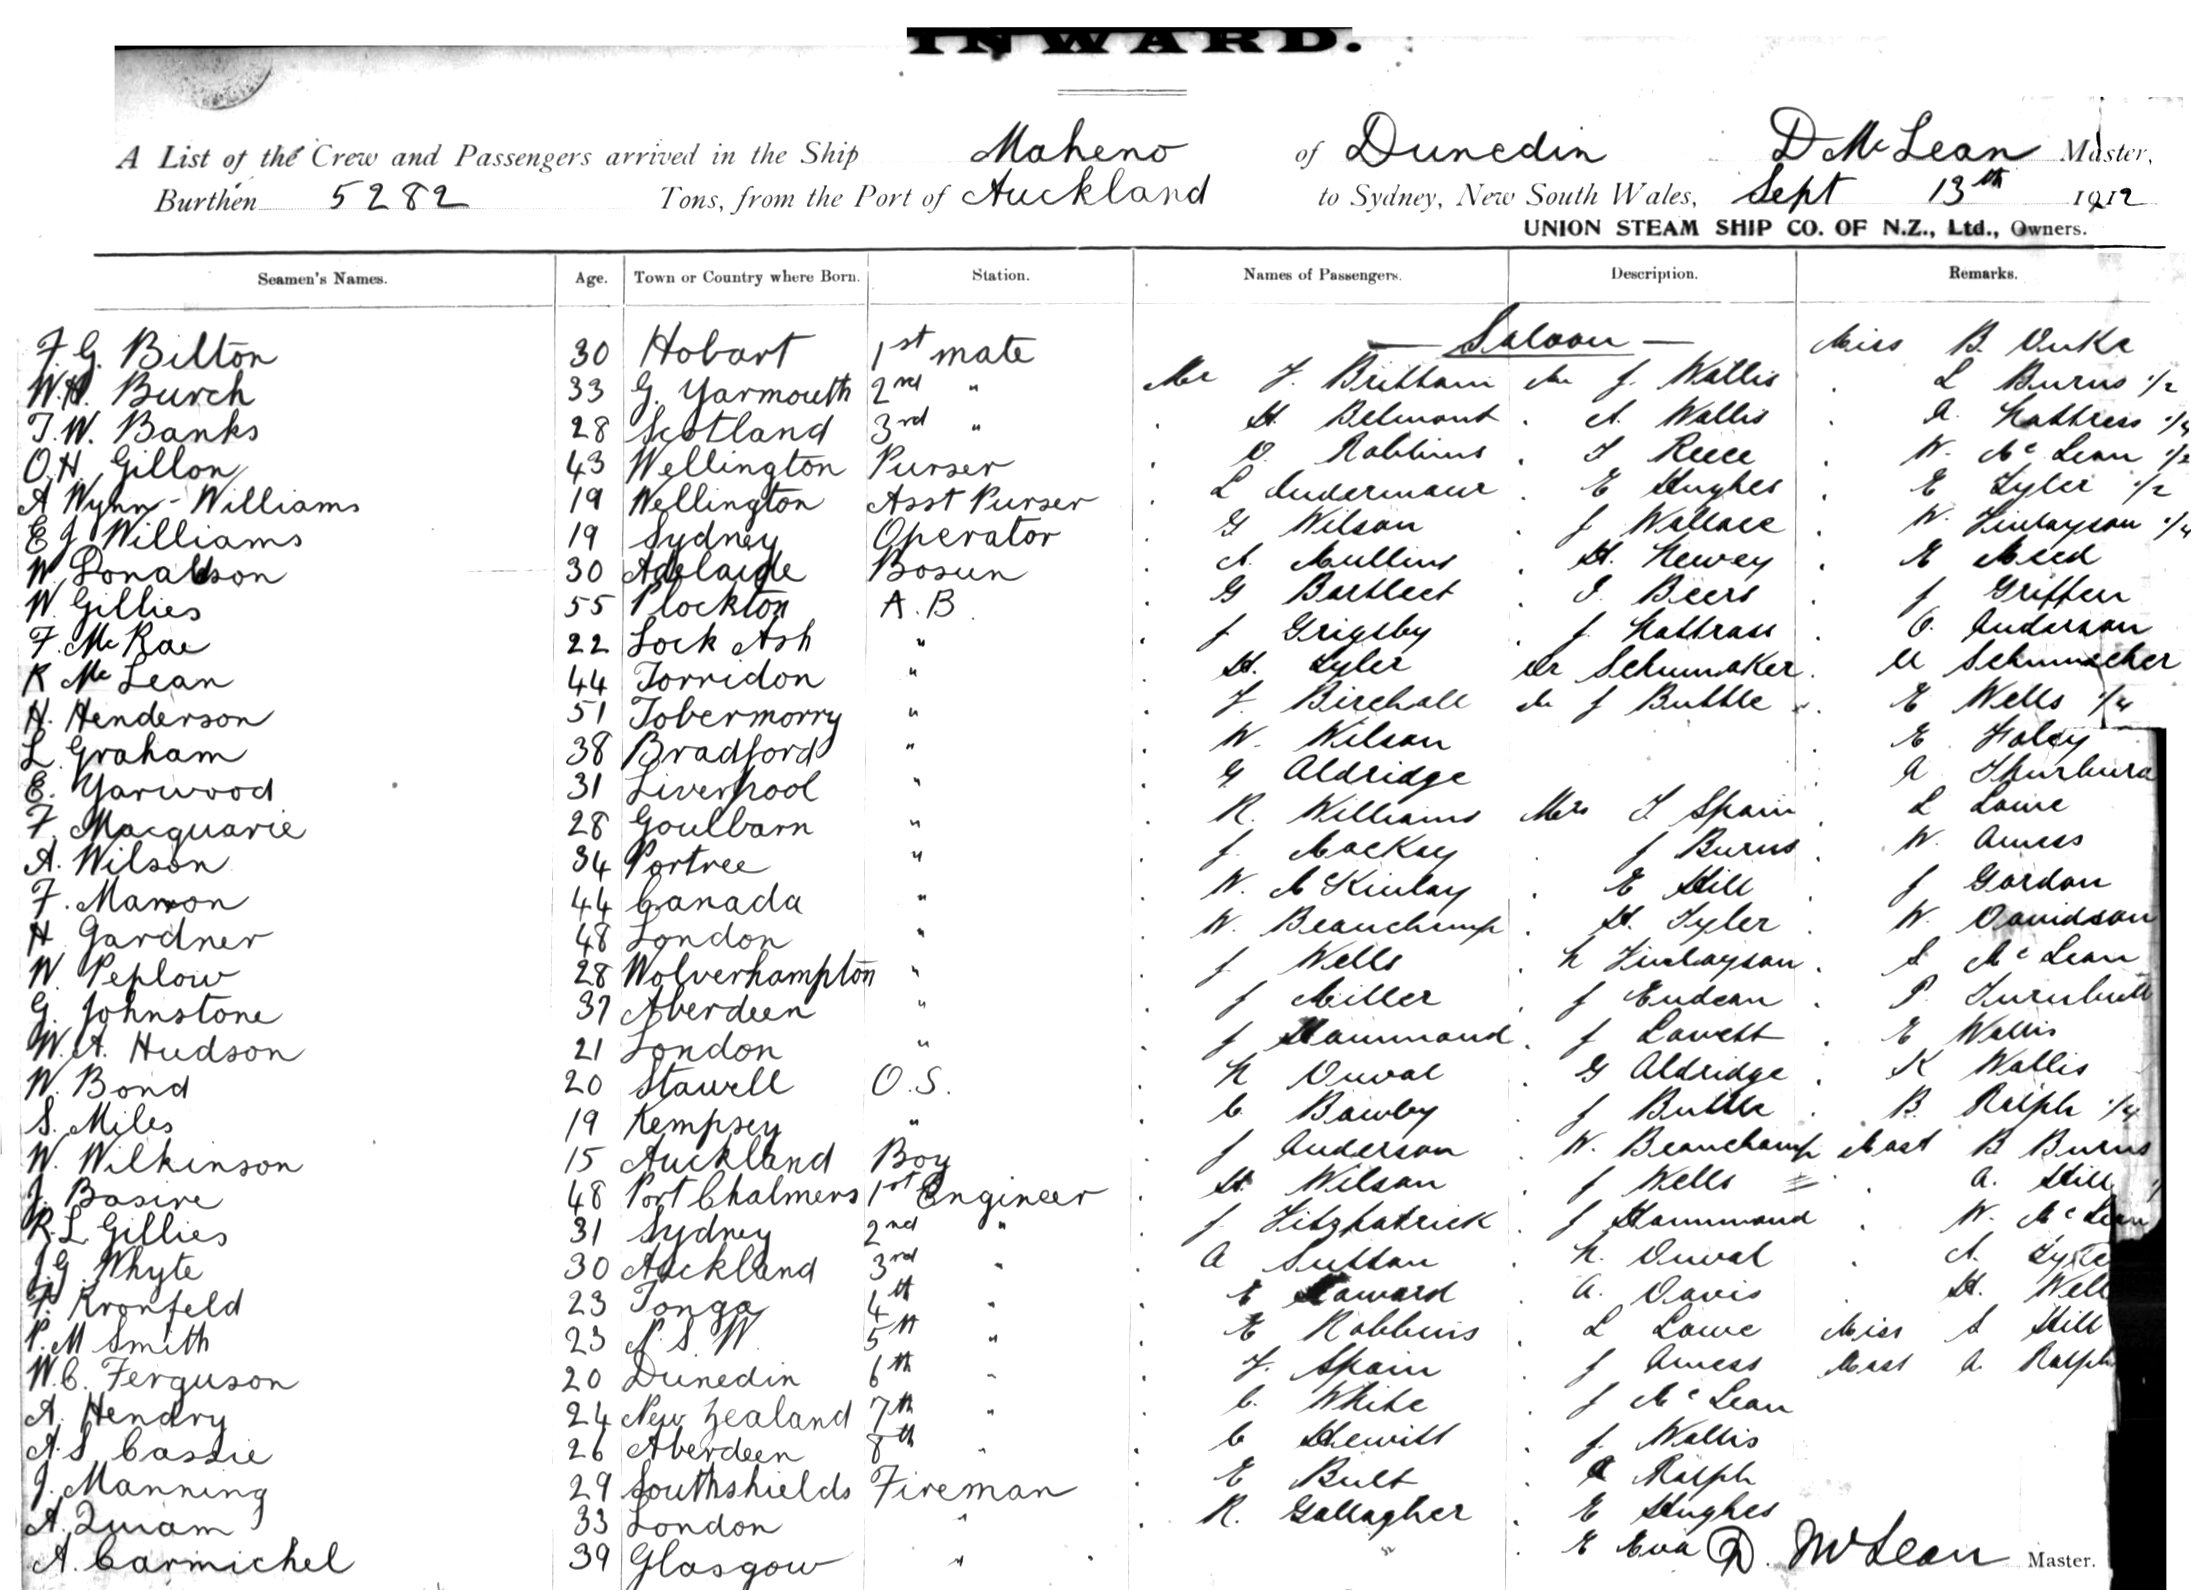 INWARD.
A List of the Crew and Passengers arrived in the Ship Maheno of Dunedin D McLean Master,
Burthen 5282 Tons, from the Port of Auckland to Sydney, New South Wales, Sept 13th 1912
UNION STEAM SHIP CO. OF N.Z., Ltd., Owners.
Seamen's Names. Age. Town or Country where Born. Station. Names of Passengers. Description. Remarks.
— Saloon —
F. G. Bilton 30 Hobart 1st mate Miss B.
W.H. Burch 33 G. Yarmouth 2nd " Mr F. Brittain Mr J. Wallis L Burns 1/2
T. W. Banks 28 Scotland 3rd " . H. Belmont . A. Wallis . A. Nattress 1/4
O.H. Gillon 43 Wellington Purser . O. Robbins . T Reece . W. McLean 1/2
A Wynn-Williams 19 Wellington Asst Purser . L . E Hughes . E Tyler 1/2
E J Williams 19 Sydney Operator . G Wilson . J Wallace . W. Finlayson 1/4
W. Donaldson 30 Adelaide Bosun . A. Mullins . H. Newey . E Meed
W. Gillies 55 Plockton A.B . G Bartlect . I. Beers . J Griffen
F. McRae 22 Lock Ash " . J Grigsby . J. Nattrass . O. Anderson
K McLean 44 Torridon " . H. Tyler Dr Schumaker . M Schumacher
H. Henderson 51 Tobermorry " . F. Birchall Mr J Buttle . E Wells 1/4
L. Graham 38 Bradford " . W. Wilson . E Foley
E. Yarwood 31 Liverpool " . G Aldridge . A Thurburd
F. Macquarie 28 Goulbarn " . R. Williams Mrs F Spain . L Lowe
A. Wilson 34 Portree " . J. MacKay . J Burns . W. Amess
F. Marron 44 Canada " . W. McKinlay . E Hill . J Gordon
H Gardner 48 London " . W. Beauchamp . H. Tyler . W. Davidson
W. Peplow 28 Wolverhampton " . J. Wells . N Finlayson . S McLean
G. Johnstone 37 Aberdeen " . J Miller . J Endean . P. Turnbull
W. A. Hudson 21 London " . J Hammond . J Lovett . E Wallis
W. Bond 20 Stawell O.S. . N Duval . G Aldridge . K Wallis
S. Miles 19 Kempsey " . C. Bowby . J Buttle . B. Ralph 1/4
W. Wilkinson 15 Auckland Boy . J Anderson . W. Beauchamp Mast B Burns
J. Basire 48 Port Chalmers 1st Engineer . H. Wilson . J Wells . A. Hill
R. L Gillies 31 Sydney 2nd " . J. Fitzpatrick . J Hammond . W. McLean
J. G. Whyte 30 Auckland 3rd " . A Sutton . N. Duval . A.
F. Kronfeld 23 Tonga 4th " . E Howard . A. Davis . H. Well
P. M Smith 23 N.S.W. 5th " . E Robbins . L Lowe Miss S Hill
W. C. Ferguson 20 Dunedin 6th " . F. Spain . J Amess Mast A. Ralph
A. Hendry 24 New Zealand 7th " . C. White . J McLean
A. S. Cassie 26 Aberdeen 8th " . C Hewitt . J. Wallis
J. Manning 29 Southshields Fireman . E Bult . Ralph
A. Quiam 33 London " . R. Gallagher . E Hughes
A. Carmichel 39 Glasgow " . E Eva D. McLean Master.